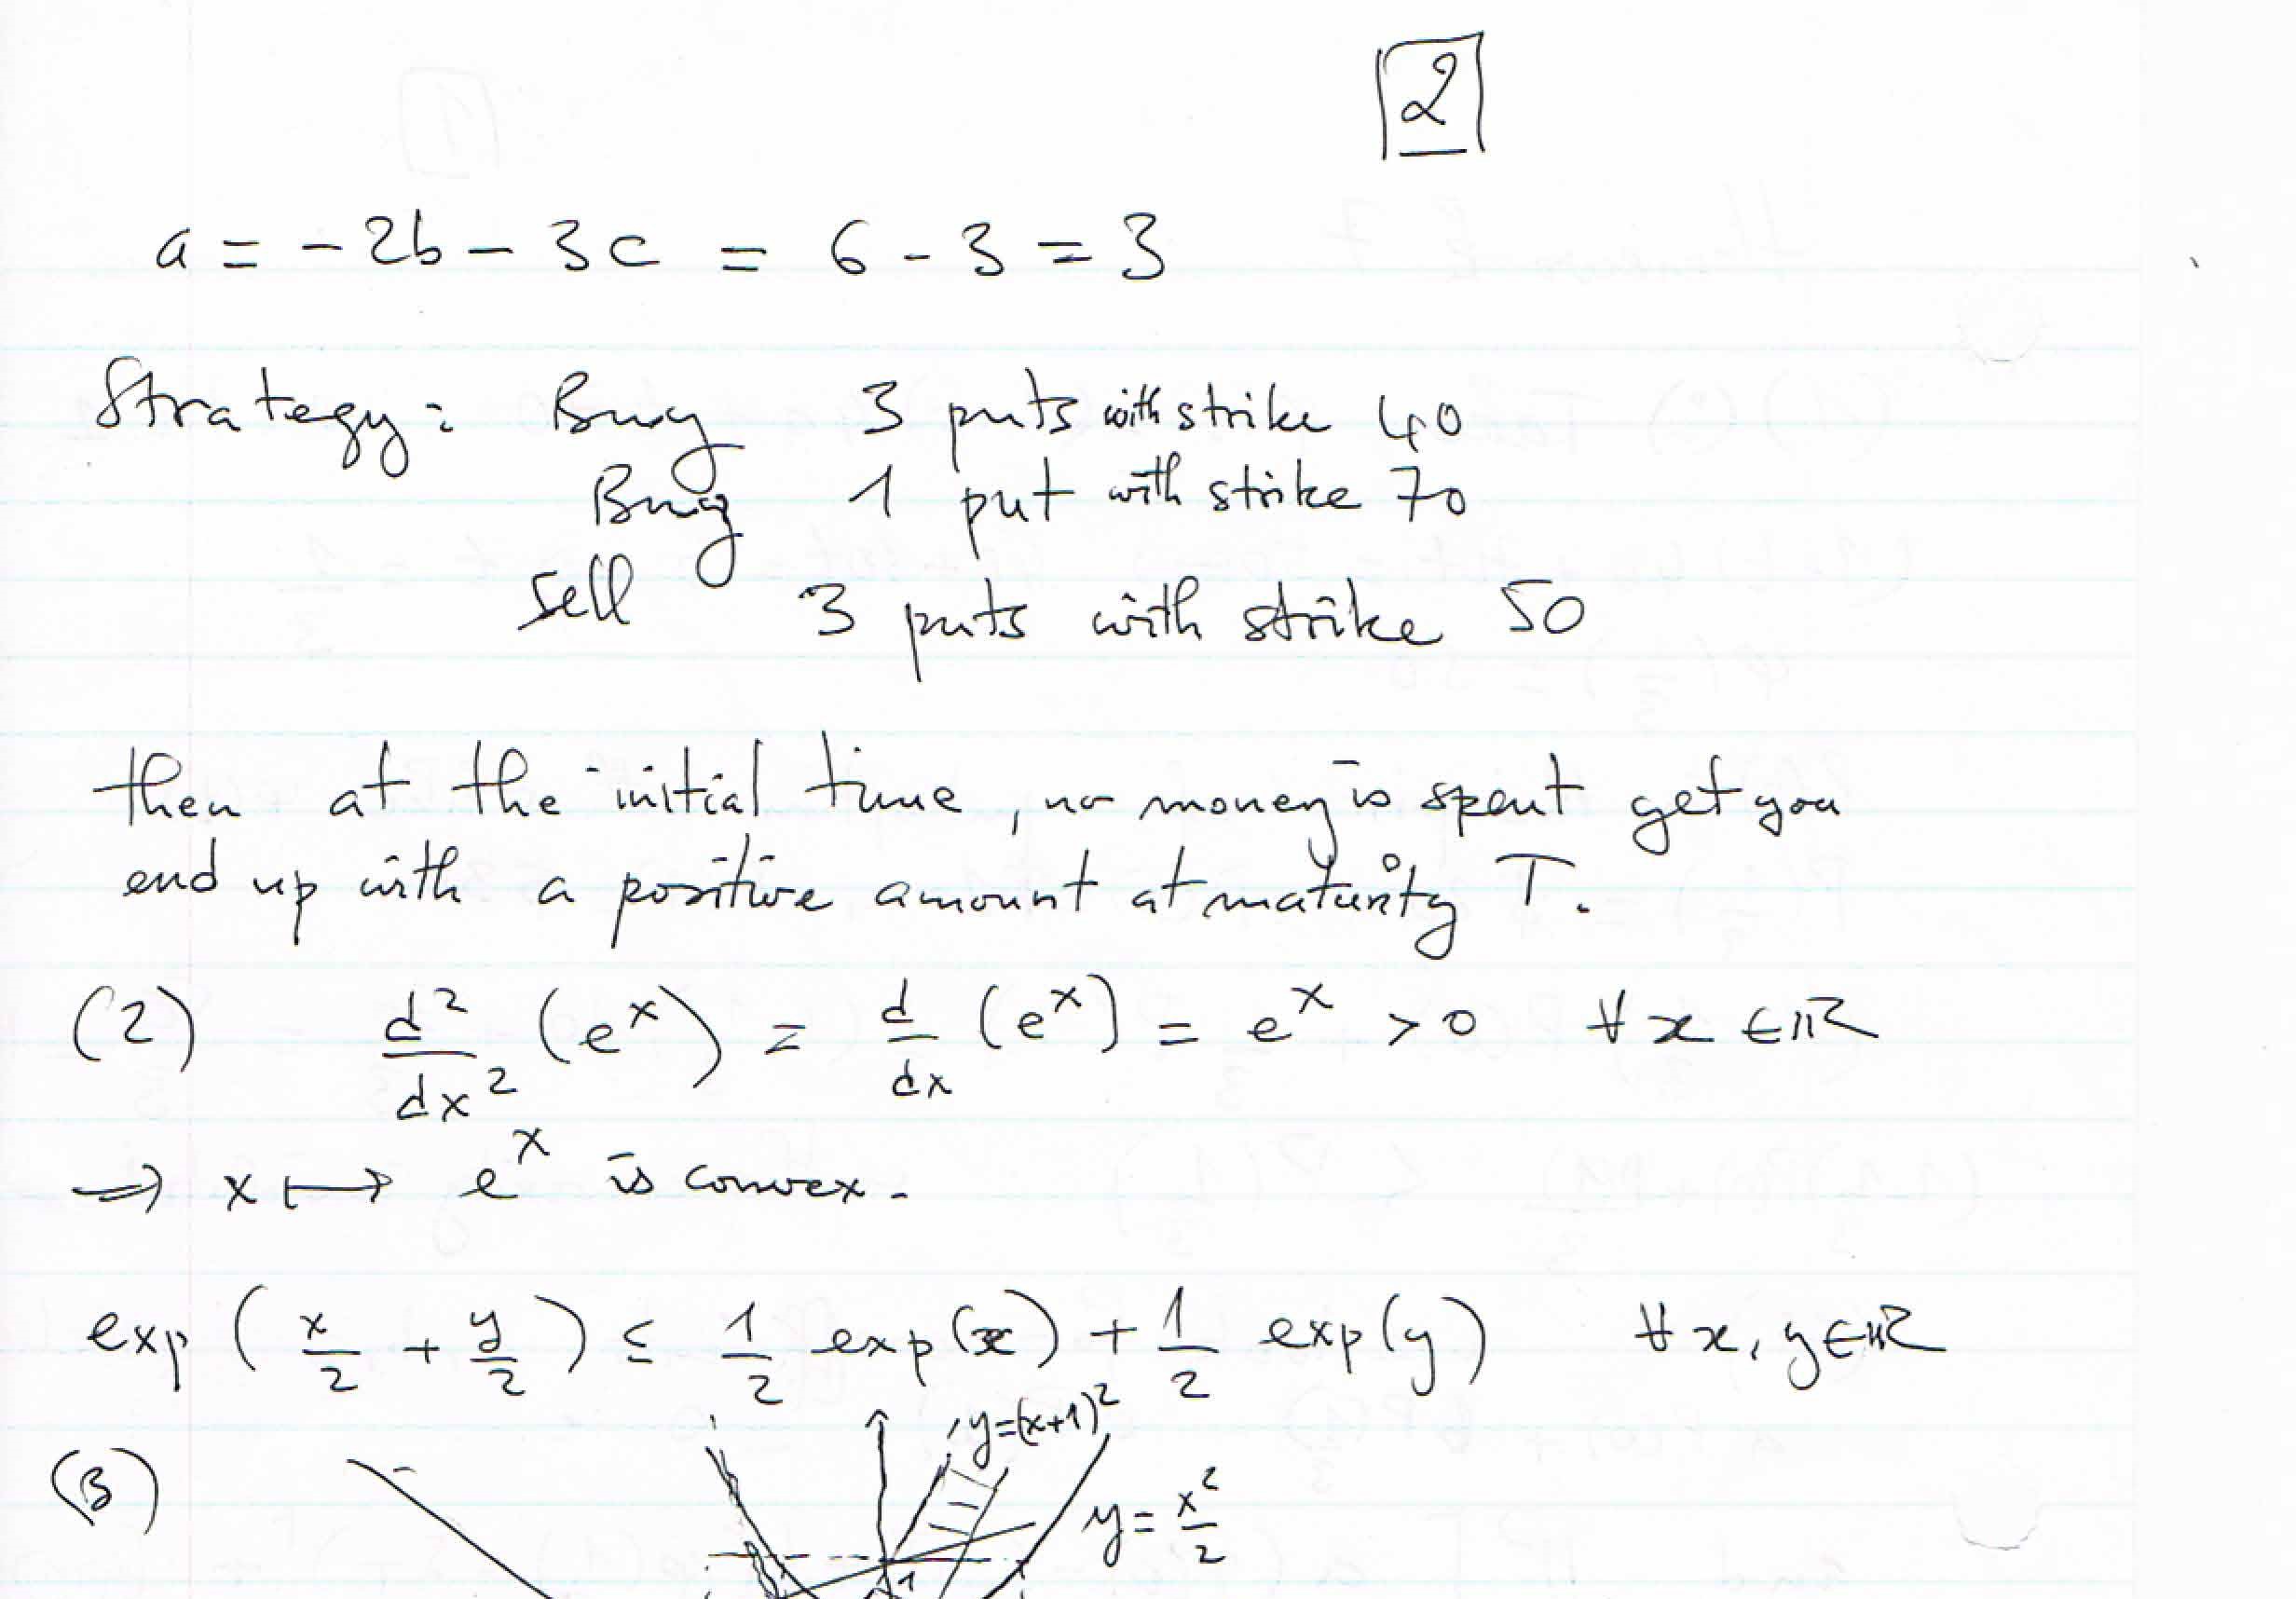 2
a = -2b - 3c = 6 - 3 = 3
Strategy: Buy 3 puts with strike 40
Buy 1 put with strike 70
Sell 3 puts with strike 50
then at the initial time, no money is spent yet you
end up with a positive amount at maturity T.
(2) d²/dx² (e^x) = d/dx (e^x) = e^x > 0 ∀ x ∈ ℝ
⇒ x ↦ e^x is convex.
exp (x/2 + y/2) ≤ 1/2 exp(x) + 1/2 exp(y) ∀ x, y ∈ ℝ
y=(x+1)²
(3)
y = x²/2
1